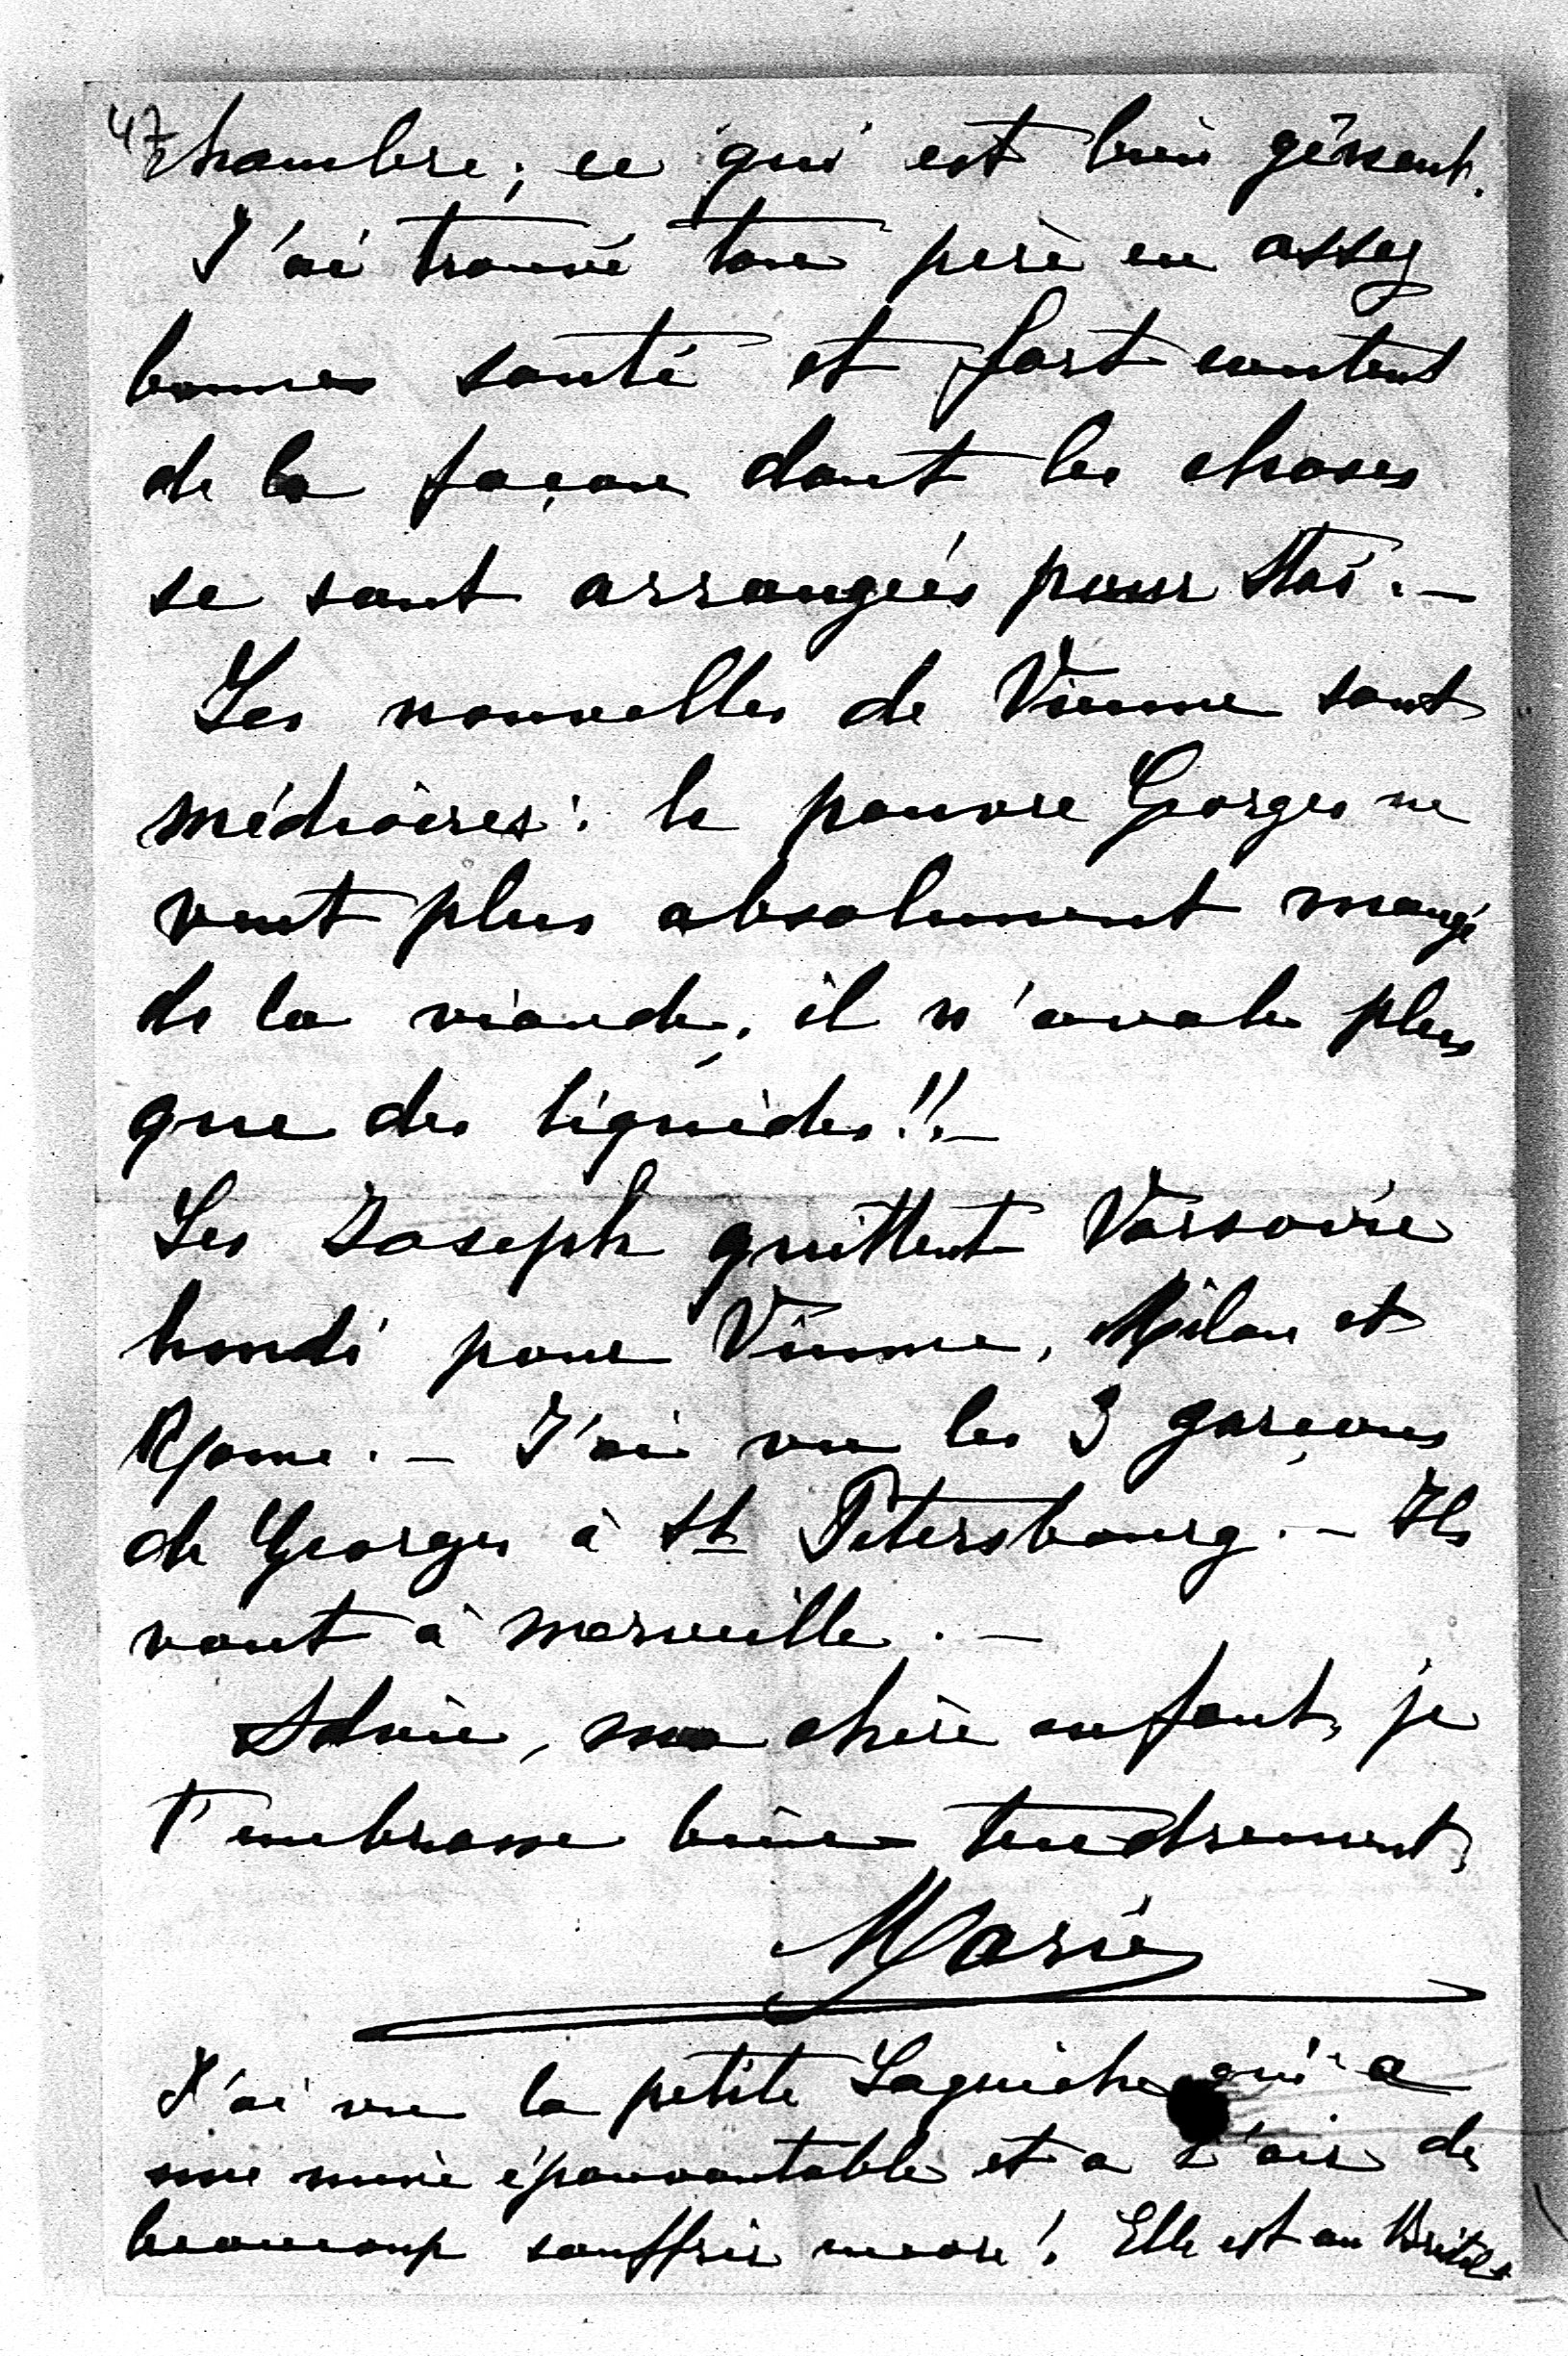 47
chambre; ce qui est bien gênant.
J'ai trouvé ton père en assez
bonne santé et fort content
de la façon dont les choses
se sont arrangées pour Stas. –
Les nouvelles de Vienne sont
médiocres: le pauvre Georges ne
veut plus absolument mangé
de la viande, il n'avale plus
que des liquides!! –
Les Joseph quittent Varsovie
lundi pour Vienne, Milan et
Rome. – J'ai vu les 3 garçons
de Georges à St Pétersbourg. – Ils
vont à merveille. –
Adieu, ma chère enfant, je
t'embrasse bien tendrement,
Marie
J'ai vu la petite Laguiche qui a
une mine épouvantable et a l'air de
beaucoup souffrir encore! Elle est au Bristol